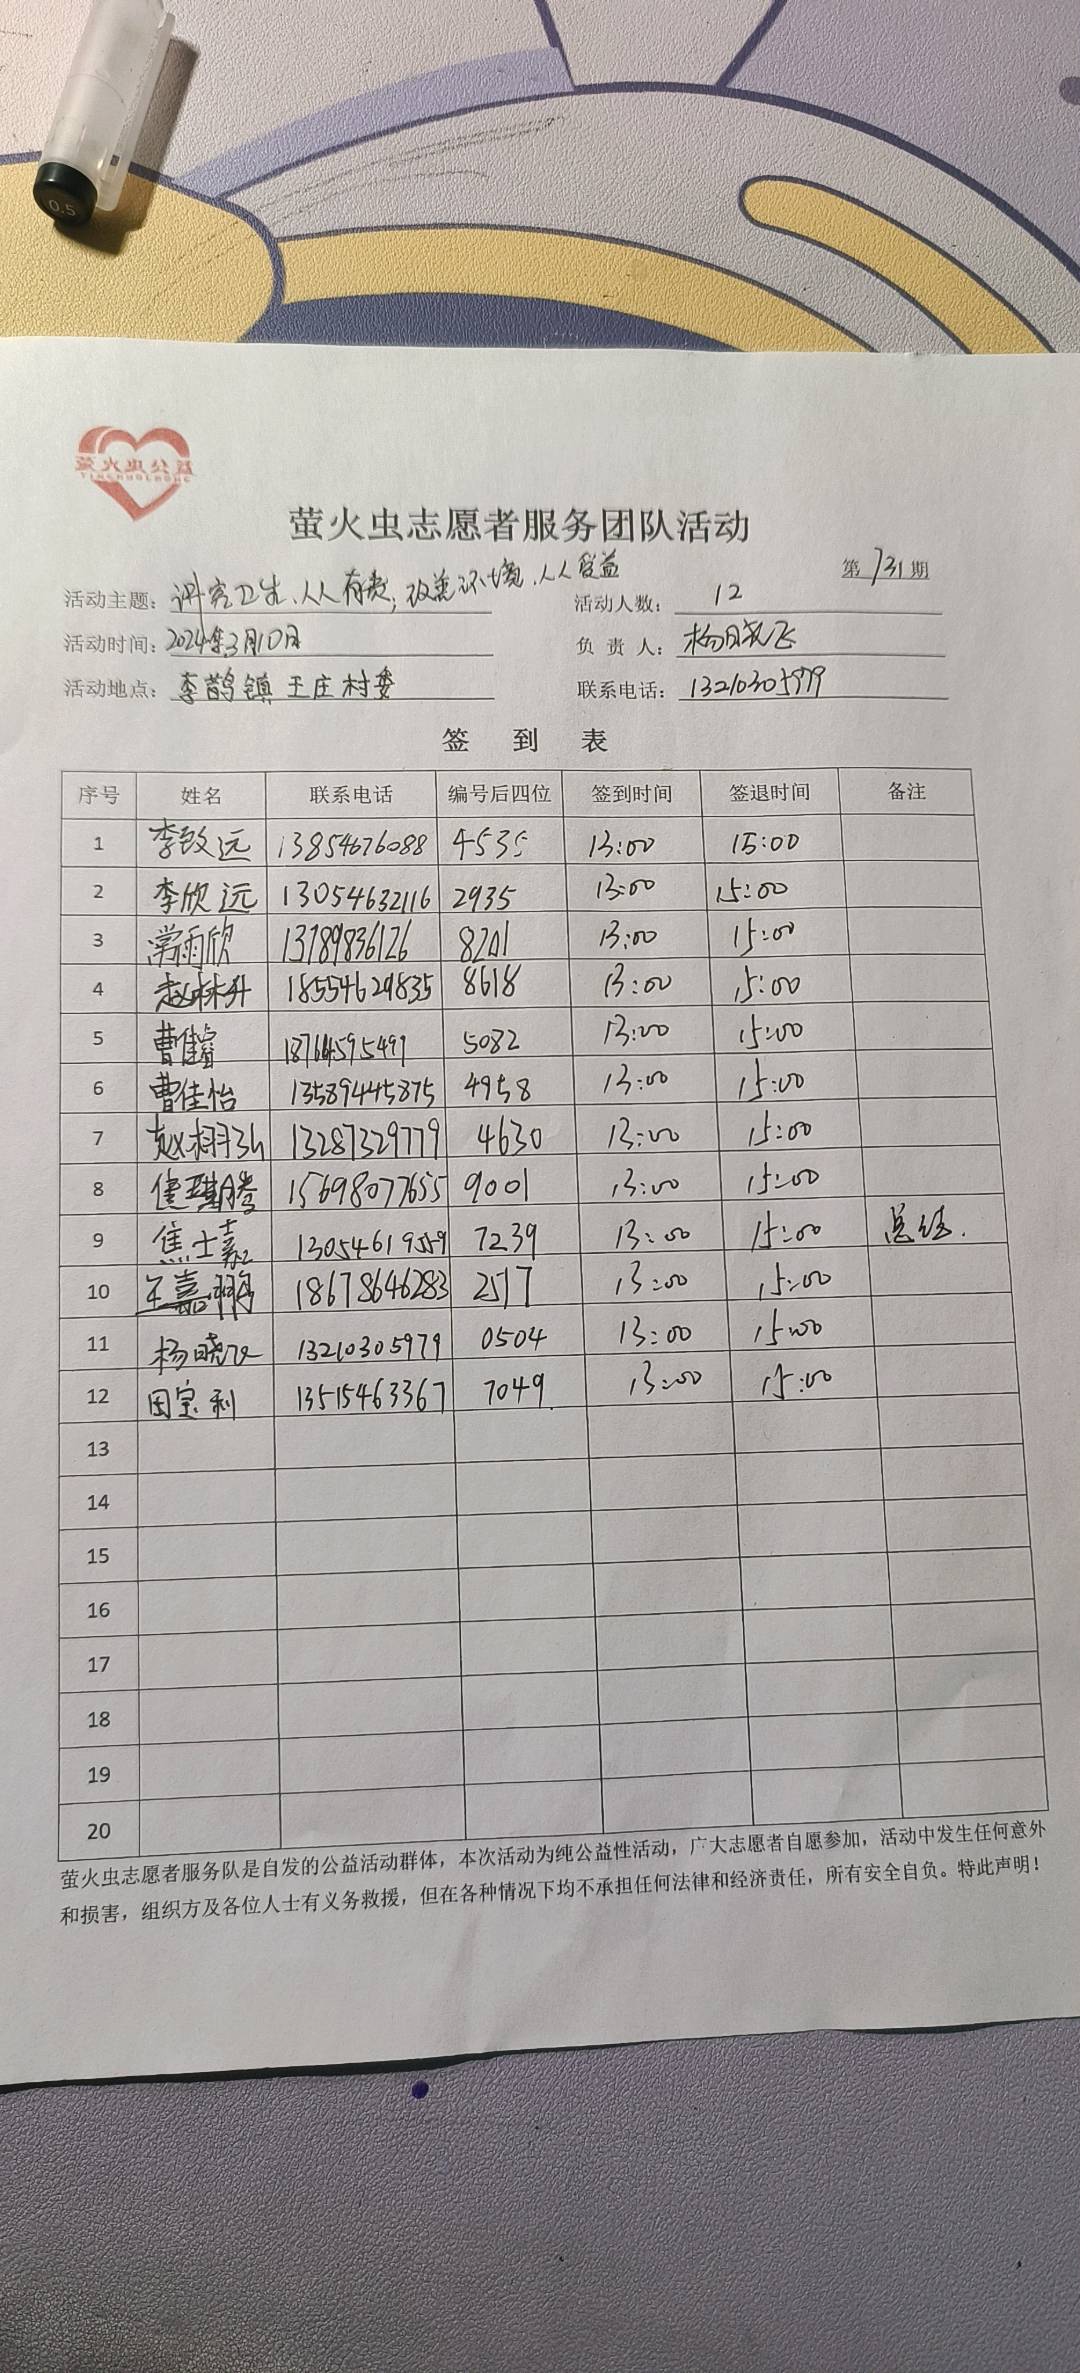 0.5
萤火虫公益
YINGHUOCHONG
萤火虫志愿者服务团队活动
第731期
活动主题: 讲究卫生、人人有责;改善环境、人人受益 活动人数: 12
活动时间: 2024年3月10日 负责人: 杨晓飞
活动地点: 李鹊镇王庄村委 联系电话: 13210305979
签到表
序号 姓名 联系电话 编号后四位 签到时间 签退时间 备注
1 李致远 13854676088 4535 13:00 15:00
2 李欣远 13054632116 2935 13:00 15:00
3 常雨欣 13789836126 8201 13:00 15:00
4 赵林升 18554629835 8618 13:00 15:00
5 曹佳睿 18764595497 5082 13:00 15:00
6 曹佳怡 13589445875 4958 13:00 15:00
7 赵栩弘 13287329779 4630 13:00 15:00
8 15698077655 9001 13:00 15:00
9 焦士嘉 13054619559 7239 13:00 15:00 总结.
10 王嘉鹏 18678646283 2517 13:00 15:00
11 杨晓飞 13210305979 0504 13:00 15:00
12 田宝利 13515463367 7049 13:00 15:00
13
14
15
16
17
18
19
20
萤火虫志愿者服务队是自发的公益活动群体，本次活动为纯公益性活动，广大志愿者自愿参加，活动中发生任何意外
和损害，组织方及各位人士有义务救援，但在各种情况下均不承担任何法律和经济责任，所有安全自负。特此声明！